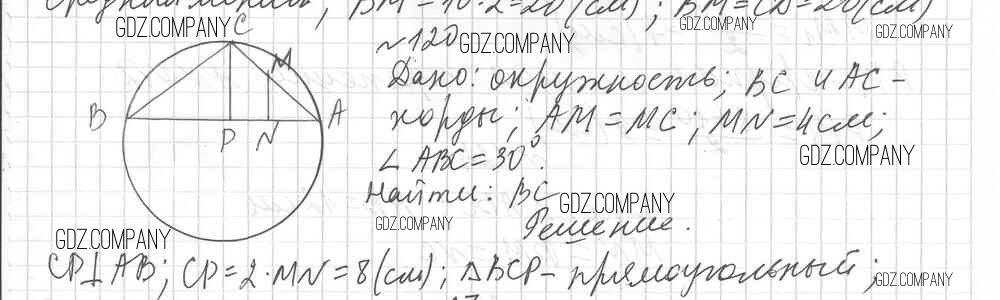 BM = 10 · 2 = 20 (см) ; BM = CD = 20 (см)
GDZ.COMPANY
GDZ.COMPANY
GDZ.COMPANY
C
№120
GDZ.COMPANY
M
Дано: окружность; BC и AC -
B
A
хорды; AM = MC; MN = 4 см;
P
N
∠ ABC = 30°.
GDZ.COMPANY
Найти: BC
GDZ.COMPANY
GDZ.COMPANY
Решение.
GDZ.COMPANY
CP⊥AB; CP = 2 · MN = 8 (см); △BCP - прямоугольный;
GDZ.COMPANY